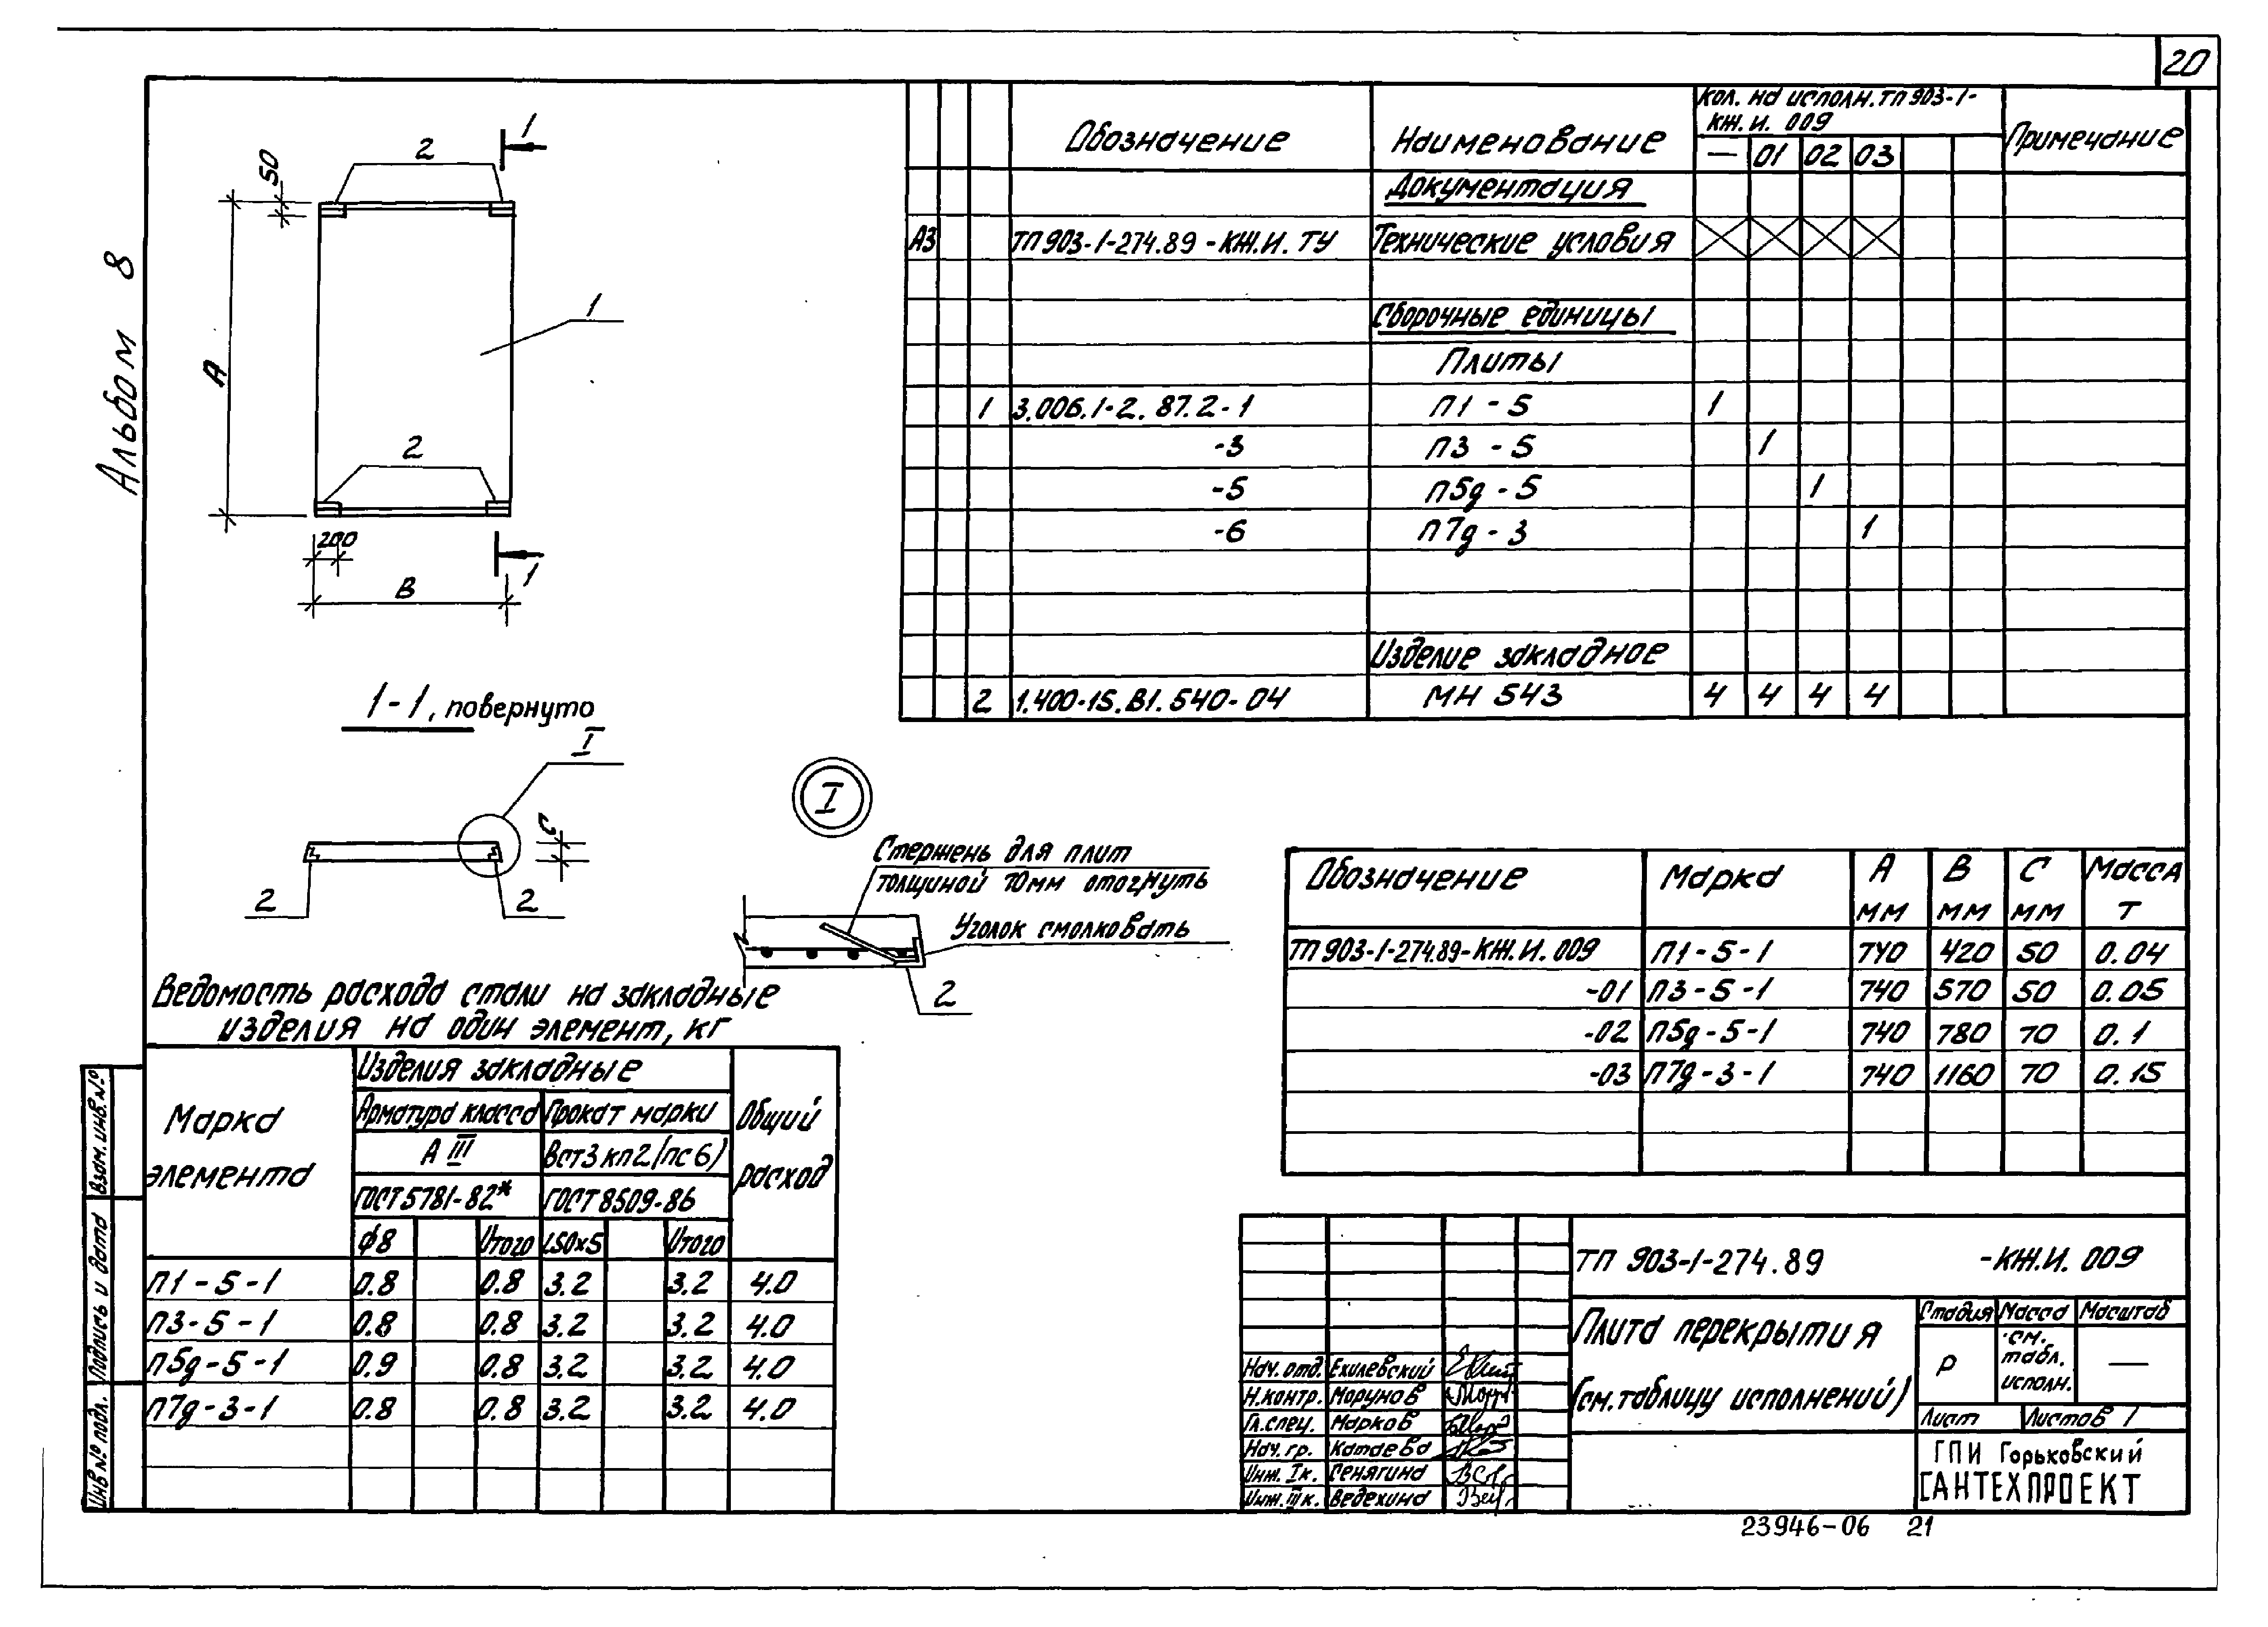 20
Альбом 8
50
2
1
А
1
2
200
1
В
Обозначение
Наименование
Кол. на исполн. ТП 903-1-
КЖ.И. 009
Примечание
— 01 02 03
Документация
А3 ТП 903-1-274.89-КЖ.И. ТУ Технические условия
Сборочные единицы
Плиты
1 3.006.1-2.87.2-1 П1-5 1
-3 П3-5 1
-5 П5д-5 1
-6 П7д-3 1
Изделие закладное
2 1.400-15.В1.540-04 МН 543 4 4 4 4
1-1, повернуто
I
С
2 2
I
Стержень для плит
толщиной 70мм отогнуть
Уголок смолковать
2
Обозначение Марка А мм В мм С мм Масса т
ТП 903-1-274.89-КЖ.И. 009 П1-5-1 740 420 50 0.04
-01 П3-5-1 740 570 50 0.05
-02 П5д-5-1 740 780 70 0.1
-03 П7д-3-1 740 1160 70 0.15
Ведомость расхода стали на закладные
изделия на один элемент, кг
Марка
элемента
Изделия закладные
Общий
расход
Арматура класса Прокат марки
А III Вст3кп2(пс6)
ГОСТ 5781-82* ГОСТ 8509-86
ф8 Итого L50х5 Итого
П1-5-1 0.8 0.8 3.2 3.2 4.0
П3-5-1 0.8 0.8 3.2 3.2 4.0
П5д-5-1 0.9 0.8 3.2 3.2 4.0
П7д-3-1 0.8 0.8 3.2 3.2 4.0
Взам. инв. №
Подпись и дата
Инв № подл.
ТП 903-1-274.89 -КЖ.И. 009
Плита перекрытия
(см. таблицу исполнений)
Стадия Масса Масштаб
Р см. табл. исполн. —
Лист Листов 1
ГПИ Горьковский
САНТЕХПРОЕКТ
Нач. отд. Ехилевский
Н.контр. Морунов
Гл.спец. Марков
Нач. гр. Катаева
Инж. Iк. Сенягина
Инж. IIIк. Ведехина
23946-06 21